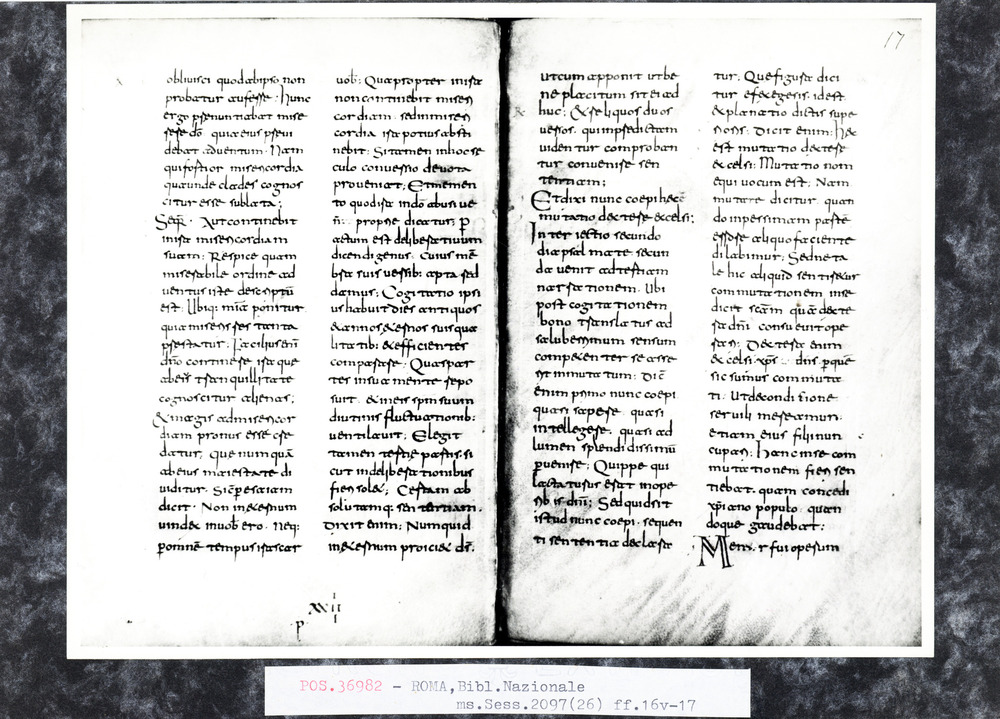 17
oblivisci quod ab ipso non
probatur aufesse. Nunc
ergo psenuntiabat mise
sese dō quia eius psevi
debat adventum. Nam
qui fostior misericordia
quae unde clades cognos
citur esse sublata;
Seqr. Aut continebit
in isa misericordiam
suam; Respice quam
misesabile ordine ad
ventus iste descriptū
est. Ubiq; mīa ponitur
quia miseris ses tanta
psestatur. Facilius enī
dīno continese isa que
aberīt tsanquillitate
cognoscitur alienas;
& magis ad misericor
diam pronus esse cse
datur, que numquā
ab eius maiestate di
viditur. Sic p esaiam
dicit. Non in etesnum
vindex in vob ero. Neq;
p omne tempus isascar
vob; Quapropter in isa
non continebit miseri
cordiam. sed in miseri
cordia isa potius absti
nebit; Si tamen in hoc se
culo convessio devota
proveniat; Et memen
to quod isa in dō abusive
n; proprie dicatur; p
actum est delibesativum
dicendi genus. Cuius mē
bsa suis vessib; apta sed
damus; Cogitatio ipsi
us habuit dies antiquos
& annos etesnos suis qua
litatib; & efficientes
compasase. Quas pas
tes in sua mente sepo
suit. & in eis spm suum
diutinis fluctuationib;
ventilavit; Elegit
tamen testie pastis. si
cut in delibesationibus
fieri solet; Cestam ab
solutamq; sententiam.
Dixit enim; Numquid
in etesnum proiciet ds.
XXII
p
ut cum apponit ut be
ne placitum sit ei ad
huc; & seliquos duos
vessos. qui in psedictam
videntur comproban
tur convenise sen
tentiam;
Et dixi nunc coepi haec
mutatio dextese excelsi;
Inter iectio secundo
diapsalmate secun
da venit ad testiam
nassationem. Ubi
post cogitationem
bono tsanslatus ad
salubessimum sensum
competenter se asse
sit minutatum; Dic
enim primo nunc coepi
quasi sapese. quasi
intellegese. quasi ad
lumen splendidissimū
pvenise; Quippe qui
lactatusus esat in ope
rib; dni; Sed quid sit
istud nunc coepi. sequen
ti sententia declasa
tur; Que figusa dici
tur efexegesis. id est
explanatio dictis supe
rioris; Dicit enim; Haec
est mutatio dextese
excelsi; Mutatio nom
equivocum est; Nam
mutare dicitur. quan
do in pessimam paste
essose aliquo faciente
dilabimur; Sed ne ta
le hic aliquid sentisetur
commutationem in se
dicit scām quā dexte
sa dnī consuevit ope
sari; Dextesa enim
excelsi xps. dns. p quē
sic sumus commuta
ti. Ut de condicione
servili mesesemur.
etiam eius filii nun
cupari; Hanc in se com
mutationem fieri sen
tiebat. quam concedi
xpiano populo. quan
doque gaudebat;
Memor fui opesum
POS.36982 - ROMA,Bibl.Nazionale
ms.Sess.2097(26) ff.16v-17